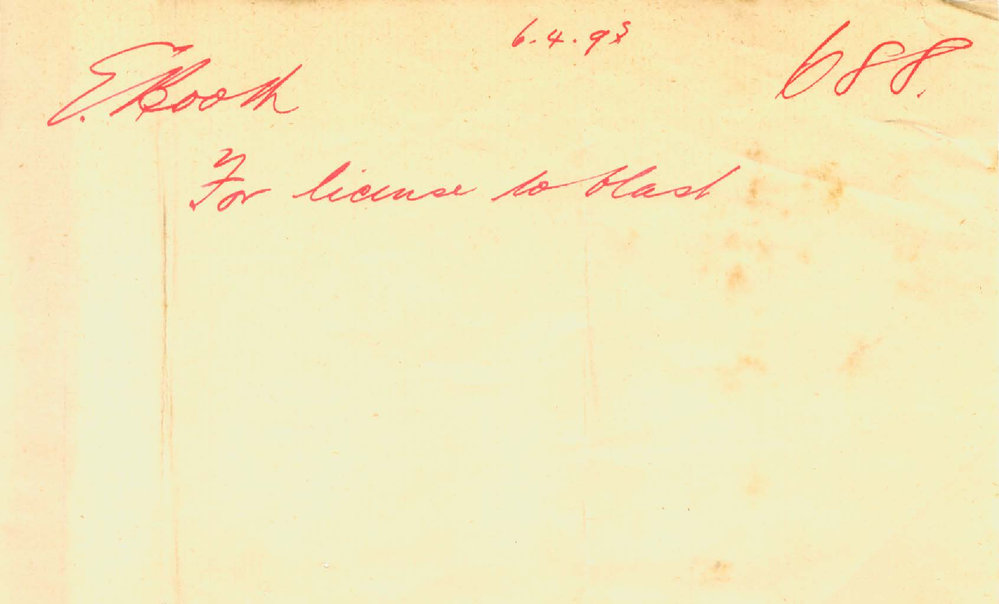 6.4.98
688.
E. Booth
For license to blast